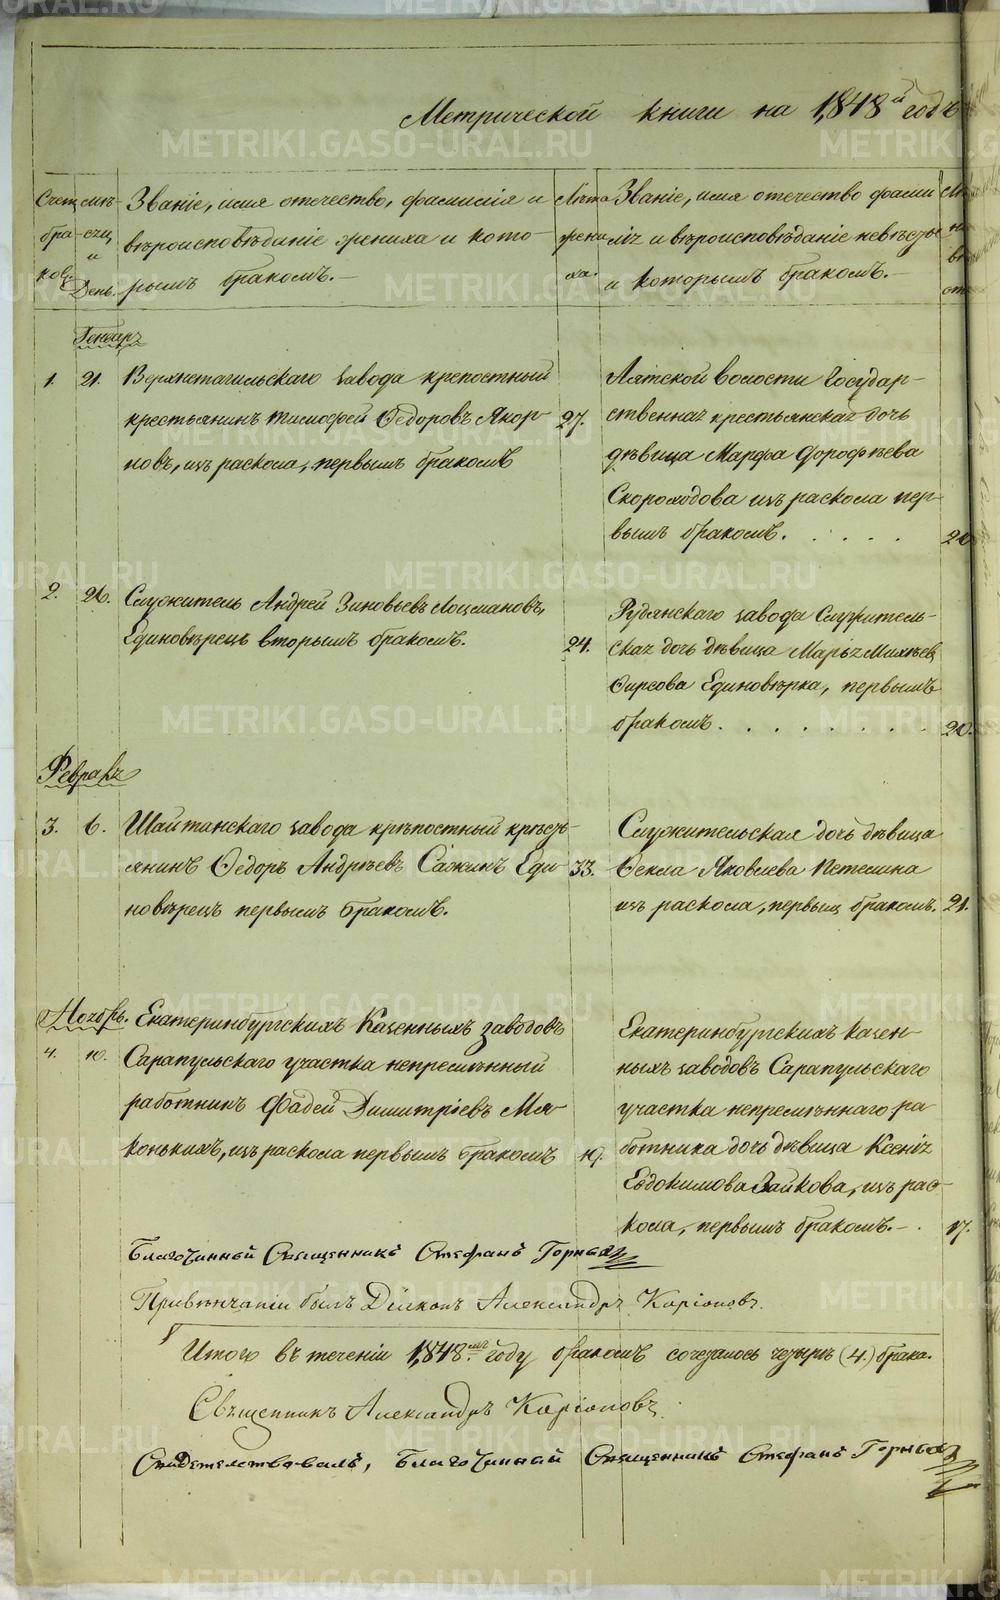 Метрической книги на 1848й годъ
Счетъ бра-ковъ.
мѣ-сяц и День.
Званіе, имя отчество, фамилія и
вѣроисповѣданіе жениха и кото-
рымъ бракомъ.-
Лѣта
жени
ха.
Званіе, имя отчество фами
лія и вѣроисповѣданіе невѣсты
и которымъ бракомъ.-
Генварь
1. 21. Верхнетагильскаго завода крепостный
крестьянинъ Тимофей Ѳедоровъ Якор-
новъ, изъ раскола, первымъ бракомъ
27.
Аятской волости Государ-
ственная крестьянская дочь
дѣвица Марфа Дорофѣева
Скороходова изъ раскола пер-
вымъ бракомъ. . . . .
20
2. 26. Служитель Андрей Зиновьевъ Лоцмановъ,
Единовѣрецъ вторымъ бракомъ.
24.
Рудянскаго завода Служитель-
ская дочь дѣвица Марья Михѣев
Фирсова Единовѣрка, первымъ
бракомъ. . . . . . . .
20.
Февраль
3. 6. Шайтанскаго завода крѣпостный крѣсть-
янинъ Ѳедоръ Андрѣевъ Сажинъ Еди
новѣрецъ первымъ бракомъ.
33.
Служительская дочь дѣвица
Ѳекла Яковлева Петелина
изъ раскола, первым бракомъ.
21.
Ноябрь.
4. 10. Екатеринбургскихъ Казенныхъ заводовъ
Сарапульскаго участка непремѣнный
работникъ Фадей Димитріевъ Мя
конькихъ, изъ раскола первымъ бракомъ
19.
Екатеринбургскихъ казен-
ныхъ заводовъ Сарапульскаго
участка непремѣннаго ра
ботника дочь дѣвица Ксенія
Евдокимова Зайкова, изъ рас-
кола, первымъ бракомъ.-.
17.
Благочинный Священникъ Стефанъ Горныхъ
Привѣнчаніи былъ Діяконъ Александръ Каріоновъ.
Итого въ теченіи 1848мъ году бракомъ сочеталось четыре (4.) брака.
Священникъ Александръ Каріоновъ.
Свидетелствовалъ, Благочинный Священникъ Стефанъ Горныхъ
METRIKI.GASO-URAL.RU